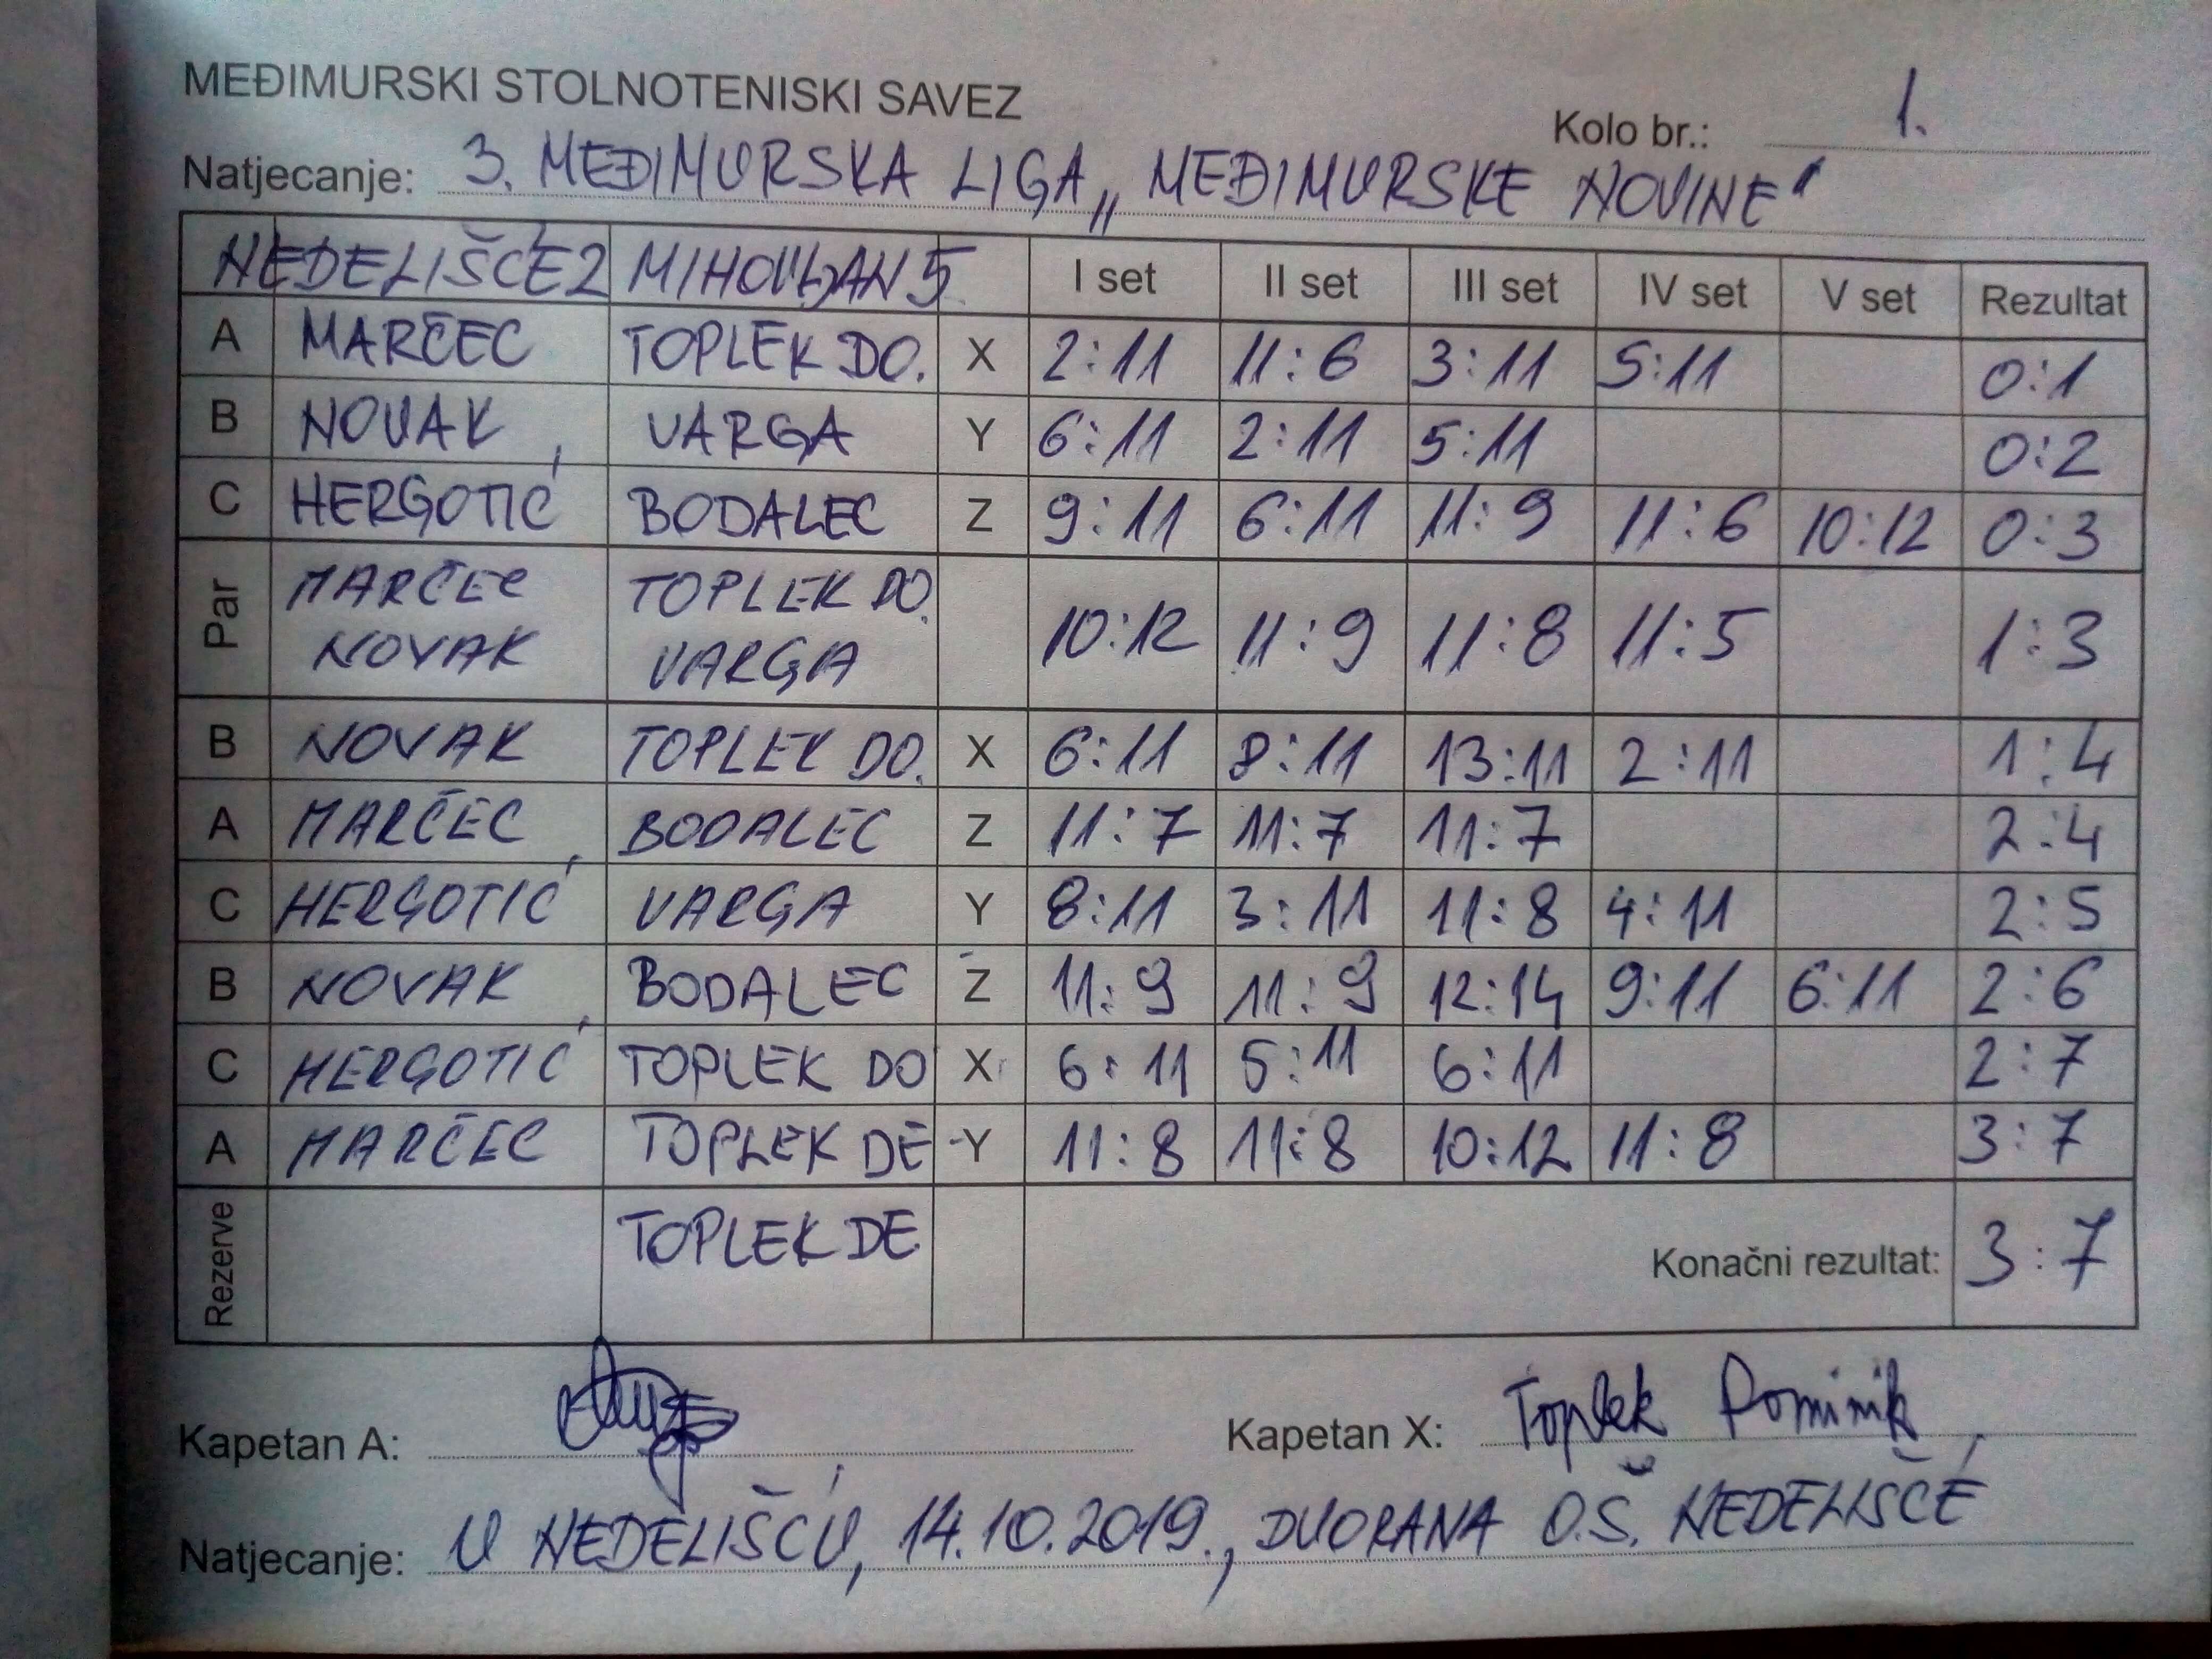 MEĐIMURSKI STOLNOTENISKI SAVEZ
Kolo br.: 1.
Natjecanje: 3. MEĐIMURSKA LIGA „MEĐIMURSKE NOVINE"
NEDELIŠĆE 2 MIHOVLJAN 5 I set II set III set IV set V set Rezultat
A MARČEC TOPLEK DO. X 2:11 11:6 3:11 5:11 0:1
B NOVAK VARGA Y 6:11 2:11 5:11 0:2
C HERGOTIĆ BODALEC Z 9:11 6:11 11:9 11:6 10:12 0:3
Par MARČEC NOVAK TOPLEK DO. VARGA 10:12 11:9 11:8 11:5 1:3
B NOVAK TOPLEK DO. X 6:11 8:11 13:11 2:11 1:4
A MARČEC BODALEC Z 11:7 11:7 11:7 2:4
C HERGOTIĆ VARGA Y 8:11 3:11 11:8 4:11 2:5
B NOVAK BODALEC Z 11:9 11:9 12:14 9:11 6:11 2:6
C HERGOTIĆ TOPLEK DO X 6:11 5:11 6:11 2:7
A MARČEC TOPLEK DE Y 11:8 11:8 10:12 11:8 3:7
Rezerve TOPLEK DE Konačni rezultat: 3:7
Kapetan A: Kapetan X: Toplek Dominik
Natjecanje: U NEDELIŠĆU, 14.10.2019., DVORANA O.Š. NEDELIŠĆE